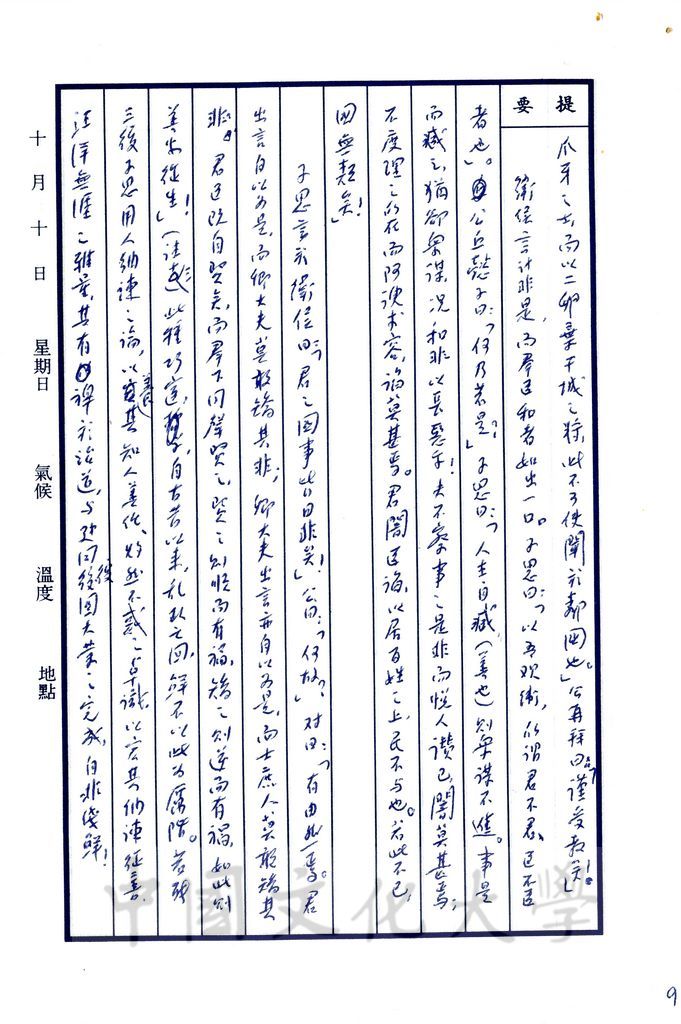 提要
爪牙之士,而以二卵棄干城之將,此不可使聞於鄰國也」。公再拜曰:「謹受教矣!」
衛侯言計非是,而群臣和者如出一口。子思曰:「以吾觀衛,所謂君不君、臣不臣
者也」。公丘懿子曰:「何乃若是?」子思曰:「人主自臧(善也)則眾謀不進。事是
而臧之,猶卻眾謀,況和非以長惡乎!夫不察事之是非而悅人讚己,闇莫甚焉;
不度理之所在而阿諛求容,諂莫甚焉。君闇臣諂,以居百姓之上,民不与也。若此不已,
國無類矣!」
子思言於衛侯曰:「君之國事將日非矣!」公曰:「何故?」对曰:「有由然焉。君
出言自以為是,而卿大夫莫敢矯其非;卿大夫出言亦自以為是,而士庶人莫敢矯其
非。君臣既自賢矣,而群下同聲賢之,賢之則順而有福,矯之則逆而有禍,如此則
善安從生!」此種 自古昔以來,亂 亡國,鮮不以此為厲階。若能
三復子思用人納諫之論,以 其知人善任、 然不惑之卓識,以宏其納諫從善、
汪洋無涯之雅量,其有裨於治道,与 同復國大業之完成,自非淺鮮!
十月十日 星期日 氣候 溫度 地點
中國文化大學
9